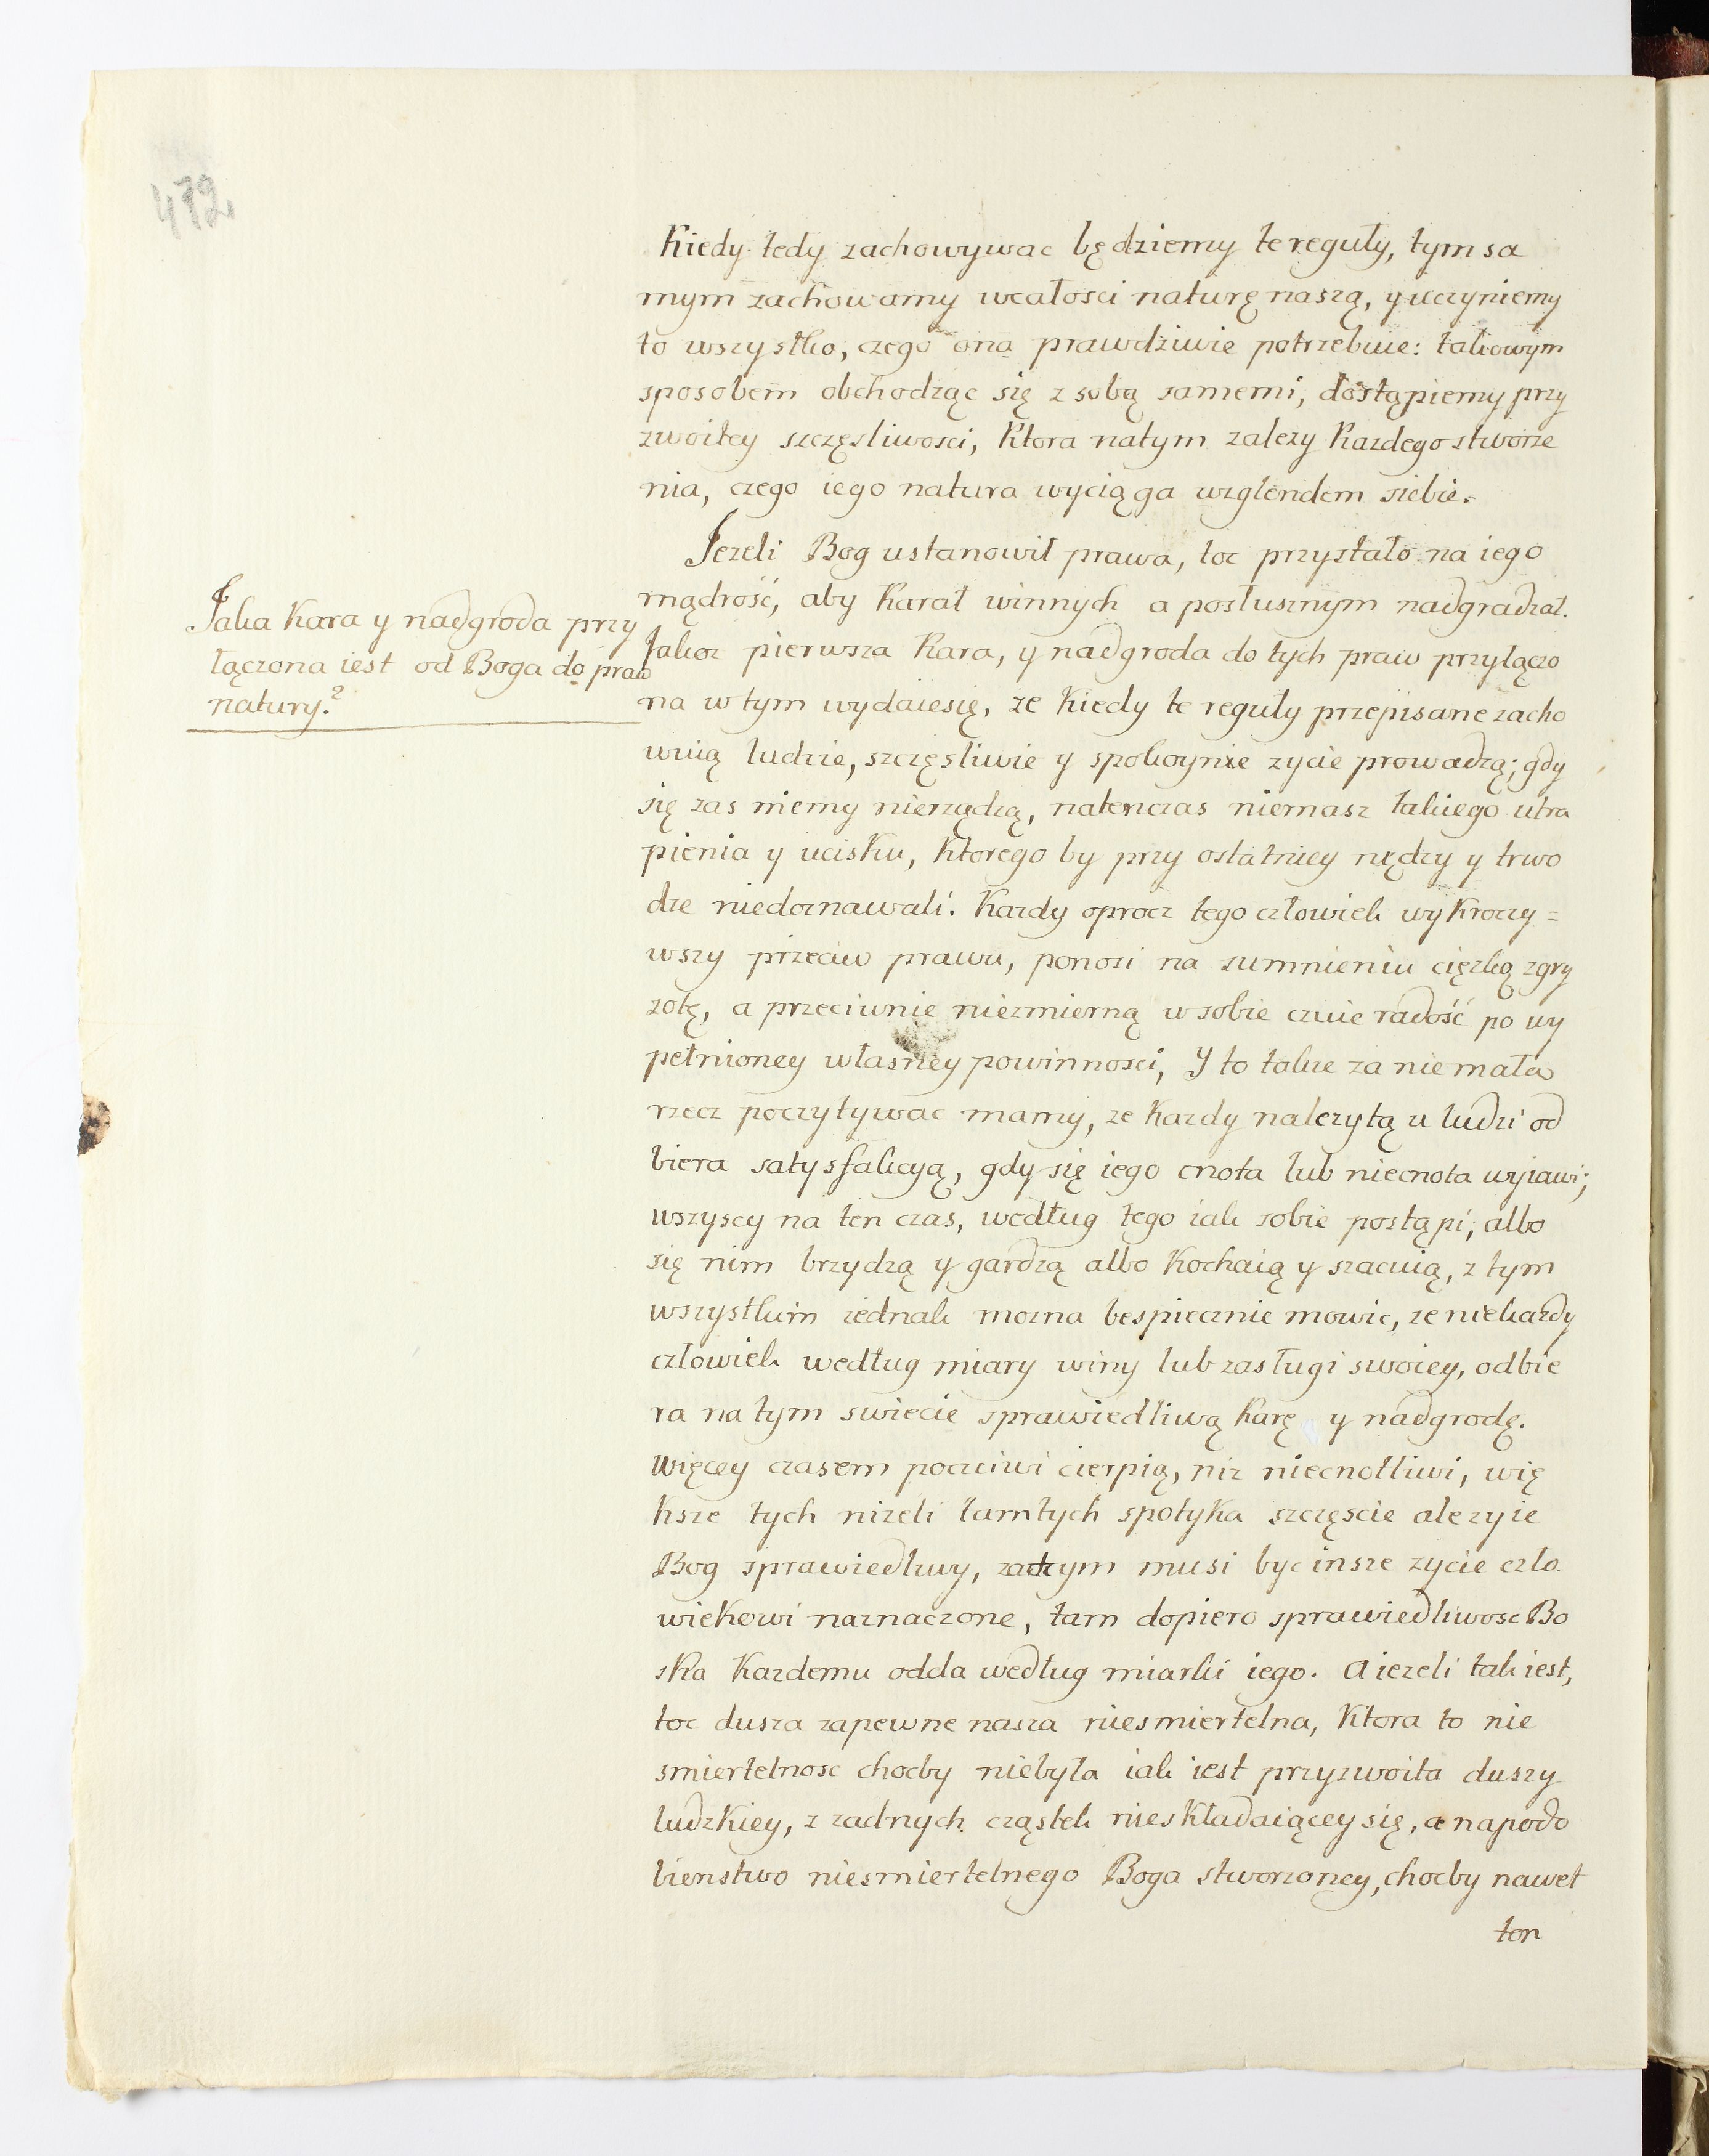 472
Kiedy tedy zachowywac będziemy te reguły, tym sa
mym zachowamy wcałosci naturę naszą, y uczyniemy
to wszystko, czego ona prawdziwie potrzebuie: takowym
sposobem obchodząc się z sobą samemi, dostąpiemy przy
zwoitey szczęsliwosci, Ktora natym zalezy Kazdego stworze
nia, czego iego natura wyciąga wzglendem siebie.
Jezeli Bog ustanowił prawa, toc przystało na iego
mądrość, aby Karał winnych a posłusznym nadgradzał.
Jaka Kara y nadgroda przy
łączona iest od Boga do praw
natury.?
Jakoz pierwsza Kara, y nadgroda do tych praw przyłączo
na w tym wydaiesię, ze Kiedy te reguły przepisane zacho
wuią ludzie, szczęsliwie y spokoynie zycie prowadzą; gdy
się zas niemy nierządzą, natenczas niemasz takiego utra
pienia y ucisku, Ktorego by przy ostatniey nędzy y trwo
dze niedoznawali. Kazdy oprocz tego człowiek wyKroczy=
wszy przeciw prawu, ponosi na sumnieniu cięzką zgry
zotę, a przeciwnie niezmierną w sobie czuie radość po wy
pełnioney własney powinnosci, Y to takze za niemała
rzecz poczytywac mamy, ze Kazdy nalezytą u ludzi od
biera satysfakcyą, gdy się iego cnota lub niecnota wyiawi;
wszyscy na ten czas, według tego iak sobie postąpi, albo
się nim brzydzą y gardzą albo Kochaią y szacuią, z tym
wszystkim iednak mozna bespiecznie mowic, ze niekazdy
człowiek według miary winy lub zasługi swoiey, odbie
ra na tym swiecie sprawiedliwą Karę y nadgrodę.
Więcey czasem poczciwi cierpią, niz niecnotliwi, wię
ksze tych nizeli tamtych spotyka szczęscie ale zyie
Bog sprawiedliwy, zaczym musi byc insze zycie czło
wiekowi naznaczone, tam dopiero sprawiedliwosc Bo
ska Kazdemu odda według miarki iego. A iezeli tak iest,
toc dusza zapewne nasza niesmiertelna, Ktora to nie
smiertelnosc chocby niebyła iak iest przyzwoita duszy
ludzkiey, z zadnych cząstek nieskładaiącey się, a napodo
bienstwo niesmiertelnego Boga stworzoney, chocby nawet
ton